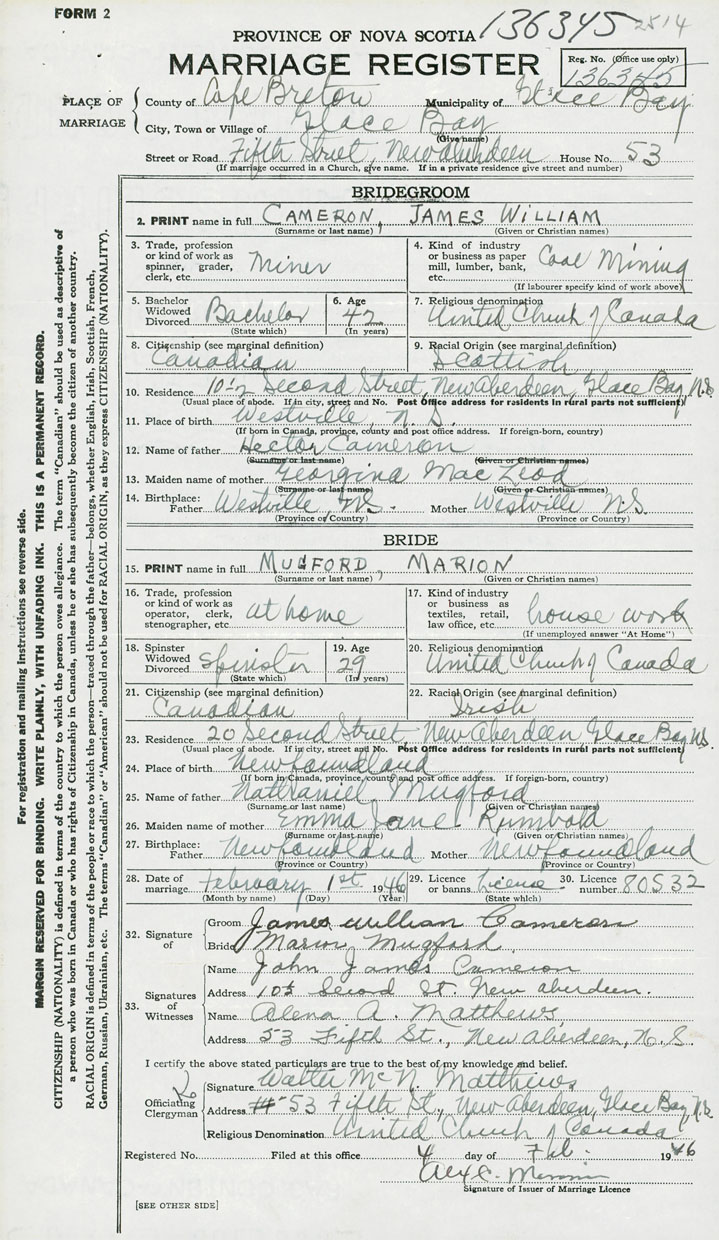 FORM 2
136345 2514
PROVINCE OF NOVA SCOTIA
MARRIAGE REGISTER
Reg. No. (Office use only)
136345
PLACE OF MARRIAGE
County of Cape Breton Municipality of Glace Bay
City, Town or Village of Glace Bay
(Give name)
Street or Road Fifth Street, New Aberdeen House No. 53
(If marriage occurred in a Church, give name. If in a private residence give street and number)
BRIDEGROOM
2. PRINT name in full CAMERON, JAMES WILLIAM
(Surname or last name) (Given or Christian names)
3. Trade, profession or kind of work as spinner, grader, clerk, etc. Miner
4. Kind of industry or business as paper mill, lumber, bank, etc. Coal Mining
(If labourer specify kind of work above)
5. Bachelor Widowed Divorced Bachelor
(State which)
6. Age 42
(In years)
7. Religious denomination United Church of Canada
8. Citizenship (see marginal definition) Canadian
9. Racial Origin (see marginal definition) Scottish
10. Residence Second Street, New Aberdeen, Glace Bay, N.S.
(Usual place of abode. If in city, street and No. Post Office address for residents in rural parts not sufficient)
11. Place of birth Westville N.S.
(If born in Canada, province, county and post office address. If foreign-born, country)
12. Name of father Hector Cameron
(Surname or last name) (Given or Christian names)
13. Maiden name of mother Georgina MacLeod
(Surname or last name) (Given or Christian names)
14. Birthplace: Father Westville, N.S. Mother Westville N.S.
(Province or Country) (Province or Country)
BRIDE
15. PRINT name in full MUGFORD, MARION
(Surname or last name) (Given or Christian names)
16. Trade, profession or kind of work as operator, clerk, stenographer, etc. at home
17. Kind of industry or business as textiles, retail, law office, etc. house work
(If unemployed answer "At Home")
18. Spinster Widowed Divorced Spinster
(State which)
19. Age 29
(In years)
20. Religious denomination United Church of Canada
21. Citizenship (see marginal definition) Canadian
22. Racial Origin (see marginal definition) Irish
23. Residence 20 Second Street, New Aberdeen, Glace Bay N.S.
(Usual place of abode. If in city, street and No. Post Office address for residents in rural parts not sufficient)
24. Place of birth Newfoundland
(If born in Canada, province, county and post office address. If foreign-born, country)
25. Name of father Nathaniel Mugford
(Surname or last name) (Given or Christian names)
26. Maiden name of mother Emma Jane Rumbold
(Surname or last name) (Given or Christian names)
27. Birthplace: Father Newfoundland Mother Newfoundland
(Province or Country) (Province or Country)
28. Date of marriage February 1st 1946
(Month by name) (Day) (Year)
29. Licence or banns License
(State which)
30. Licence number 80532
32. Signature of
Groom James William Cameron
Bride Marion Mugford
33. Signatures of Witnesses
Name John James Cameron
Address Second St. New Aberdeen.
Name Alena A. Matthews
Address 53 Fifth St., New Aberdeen, N.S.
I certify the above stated particulars are true to the best of my knowledge and belief.
Officiating Clergyman
Signature Walter McN. Matthews
Address 53 Fifth St., New Aberdeen, Glace Bay, N.S.
Religious Denomination United Church of Canada
Registered No. Filed at this office 4 day of Feb. 1946
Signature of Issuer of Marriage Licence
[SEE OTHER SIDE]
For registration and mailing instructions see reverse side.
MARGIN RESERVED FOR BINDING. WRITE PLAINLY, WITH UNFADING INK. THIS IS A PERMANENT RECORD.
CITIZENSHIP (NATIONALITY) is defined in terms of the country to which the person owes allegiance. The term "Canadian" should be used as descriptive of
a person who was born in Canada or who has rights of Citizenship in Canada, unless he or she has subsequently become the citizen of another country.
RACIAL ORIGIN is defined in terms of the people or race to which the person—traced through the father—belongs, whether English, Irish, Scottish, French,
German, Russian, Ukrainian, etc. The terms "Canadian" or "American" should not be used for RACIAL ORIGIN, as they express CITIZENSHIP (NATIONALITY).